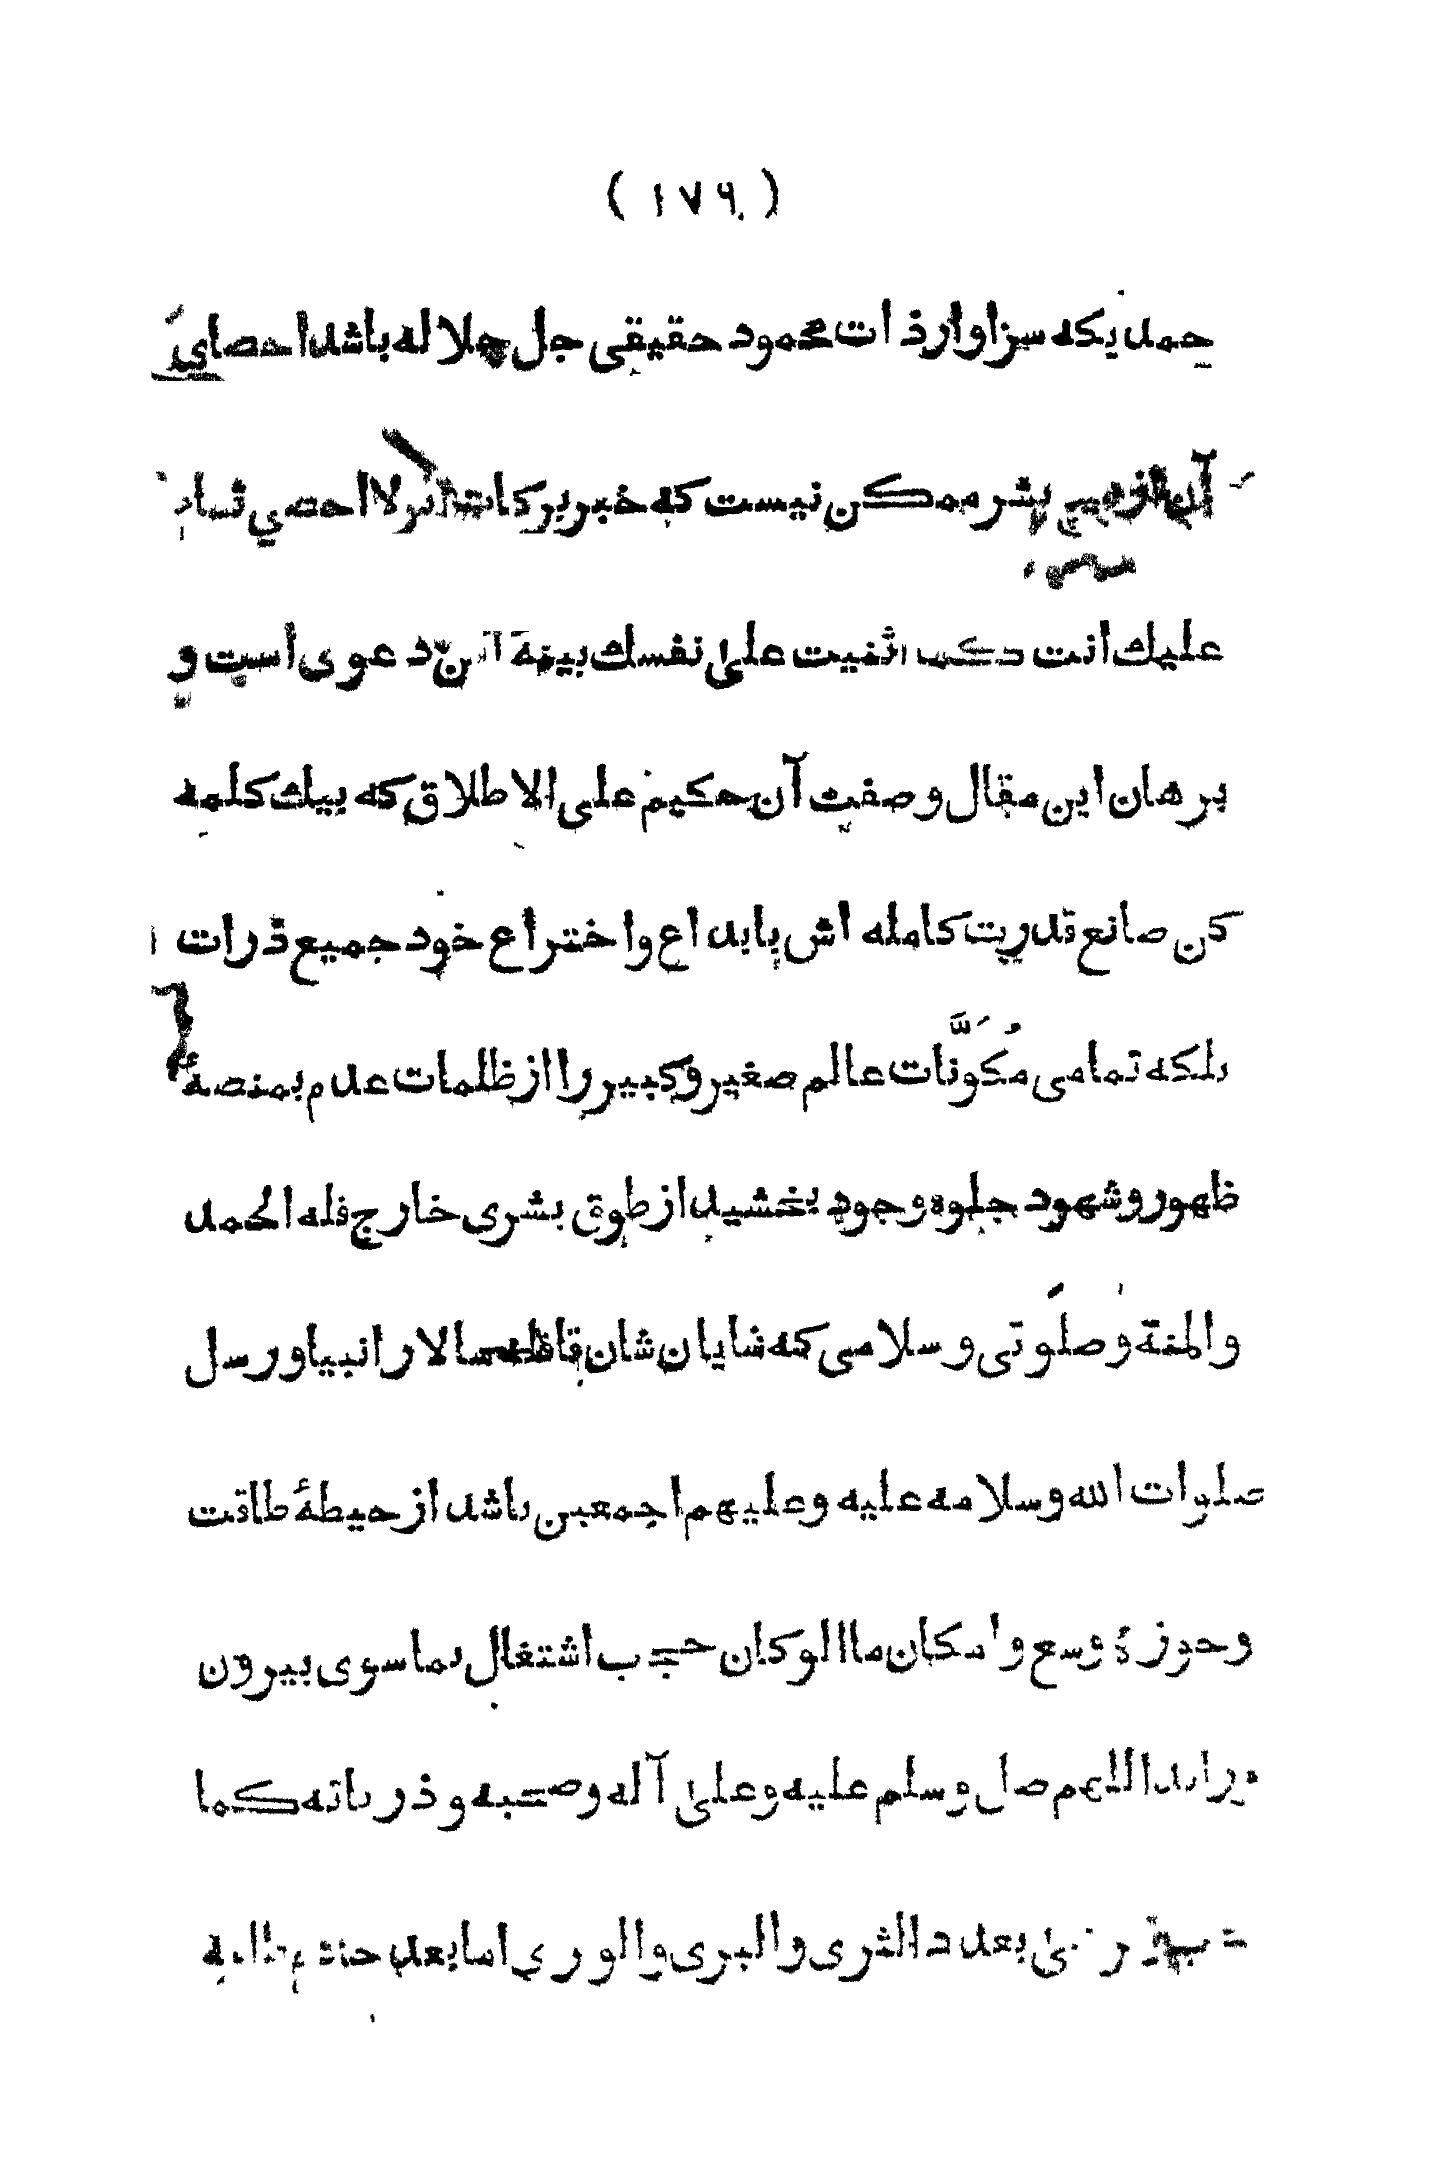 ( ١٧٩ )
حمديكه سزاوار ذات محمود حقيقى جل جلاله باشد احصاي
آن از بشر ممكن نيست كه خبر بركات لا احصي ثناء
عليك انت كما اثنيت على نفسك بينهٔ اين دعوى است و
برهان اين مقال وصفت آن حكيم على الاطلاق كه بيك كلمهٔ
كن صانع قدرت كامله اش بابداع واختراع خود جميع ذرات
بلكه تمامى مُكَوَّنات عالم صغير وكبير را از ظلمات عدم بمنصهٔ
ظهور وشهود جلوه وجود بخشيد از طوق بشرى خارج فله الحمد
والمنة وصلَوتى وسلامى كه شايان شان قافله سالار انبيا ورسل
صلوات الله وسلامه عليه وعليهم اجمعين باشد از حيطهٔ طاقت
وحوزهٔ وسع وامكان ما الوكان حجب اشتغال بما سوى بيرون
مرابد اللهم صل وسلم عليه وعلى آله وصحبه وذرياته كما
بعدد الثرى والبرى والورى اما بعد